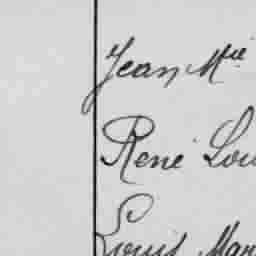 Jean Mie
René Lou
Louis Mar